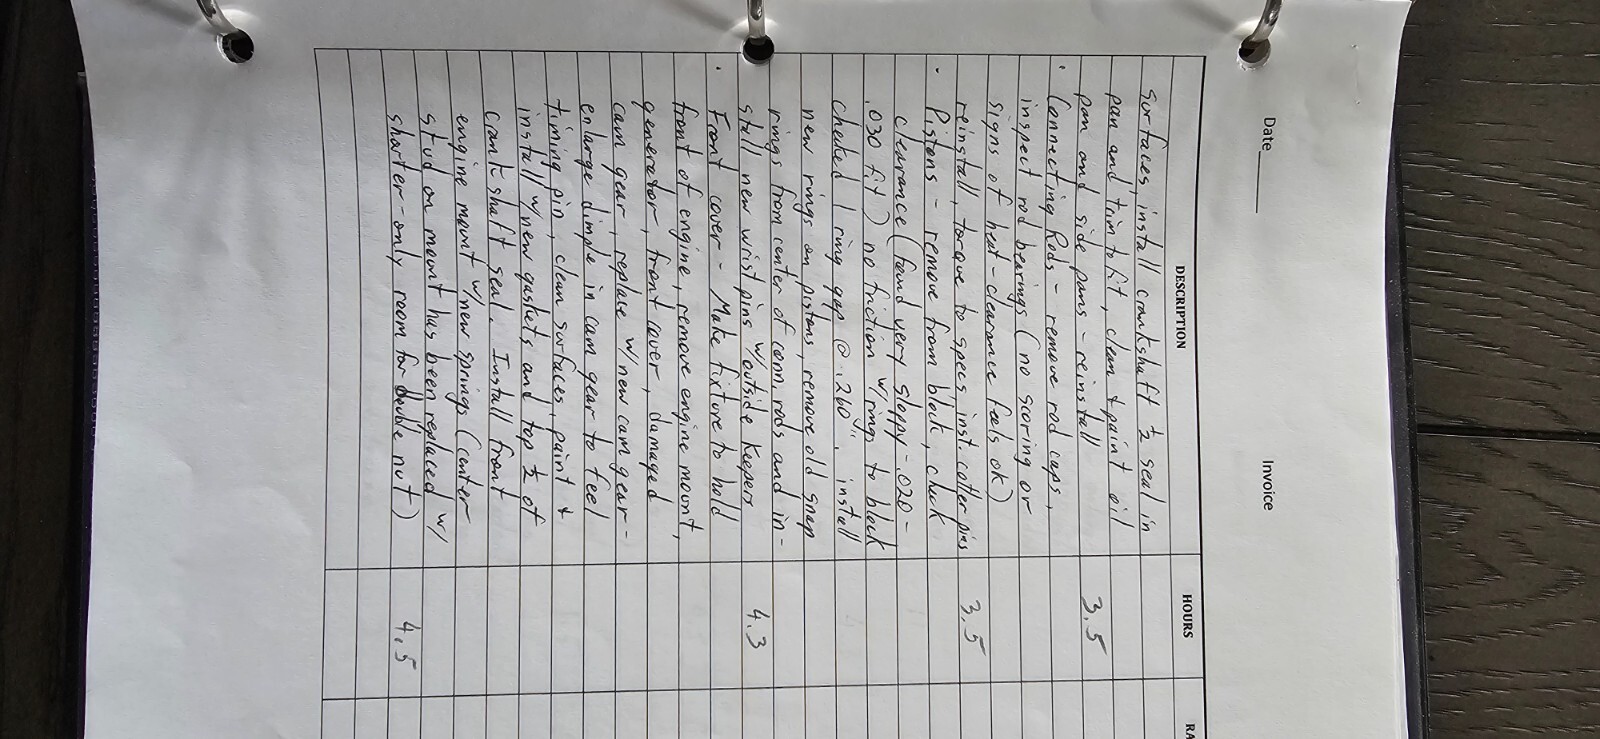 Date
Invoice
DESCRIPTION
HOURS
RA
surfaces, install crankshaft ½ seal in
pan and trim to fit, clean & paint oil
pan and side pans - reinstall 3.5
· Connecting Rods - remove rod caps,
inspect rod bearings (no scoring or
signs of heat - clearance feels ok)
reinstall, torque to specs, inst. cotter pins 3.5
· Pistons - remove from block, check
clearance (found very sloppy - .020 -
.030 fit) no friction w/rings to block
checked 1 ring gap @ .260". install
new rings on pistons, remove old snap
rings from center of conn. rods and in-
stall new wrist pins w/outside keepers 4.3
· Front cover - Make fixture to hold
front of engine, remove engine mount,
generator, front cover, damaged
cam gear, replace w/new cam gear -
enlarge dimple in cam gear to feel
timing pin, clean surfaces, paint &
install w/new gaskets and top ½ of
crankshaft seal. Install front
engine mount w/new springs (center
stud on mount has been replaced w/
shorter - only room for double nut) 4.5